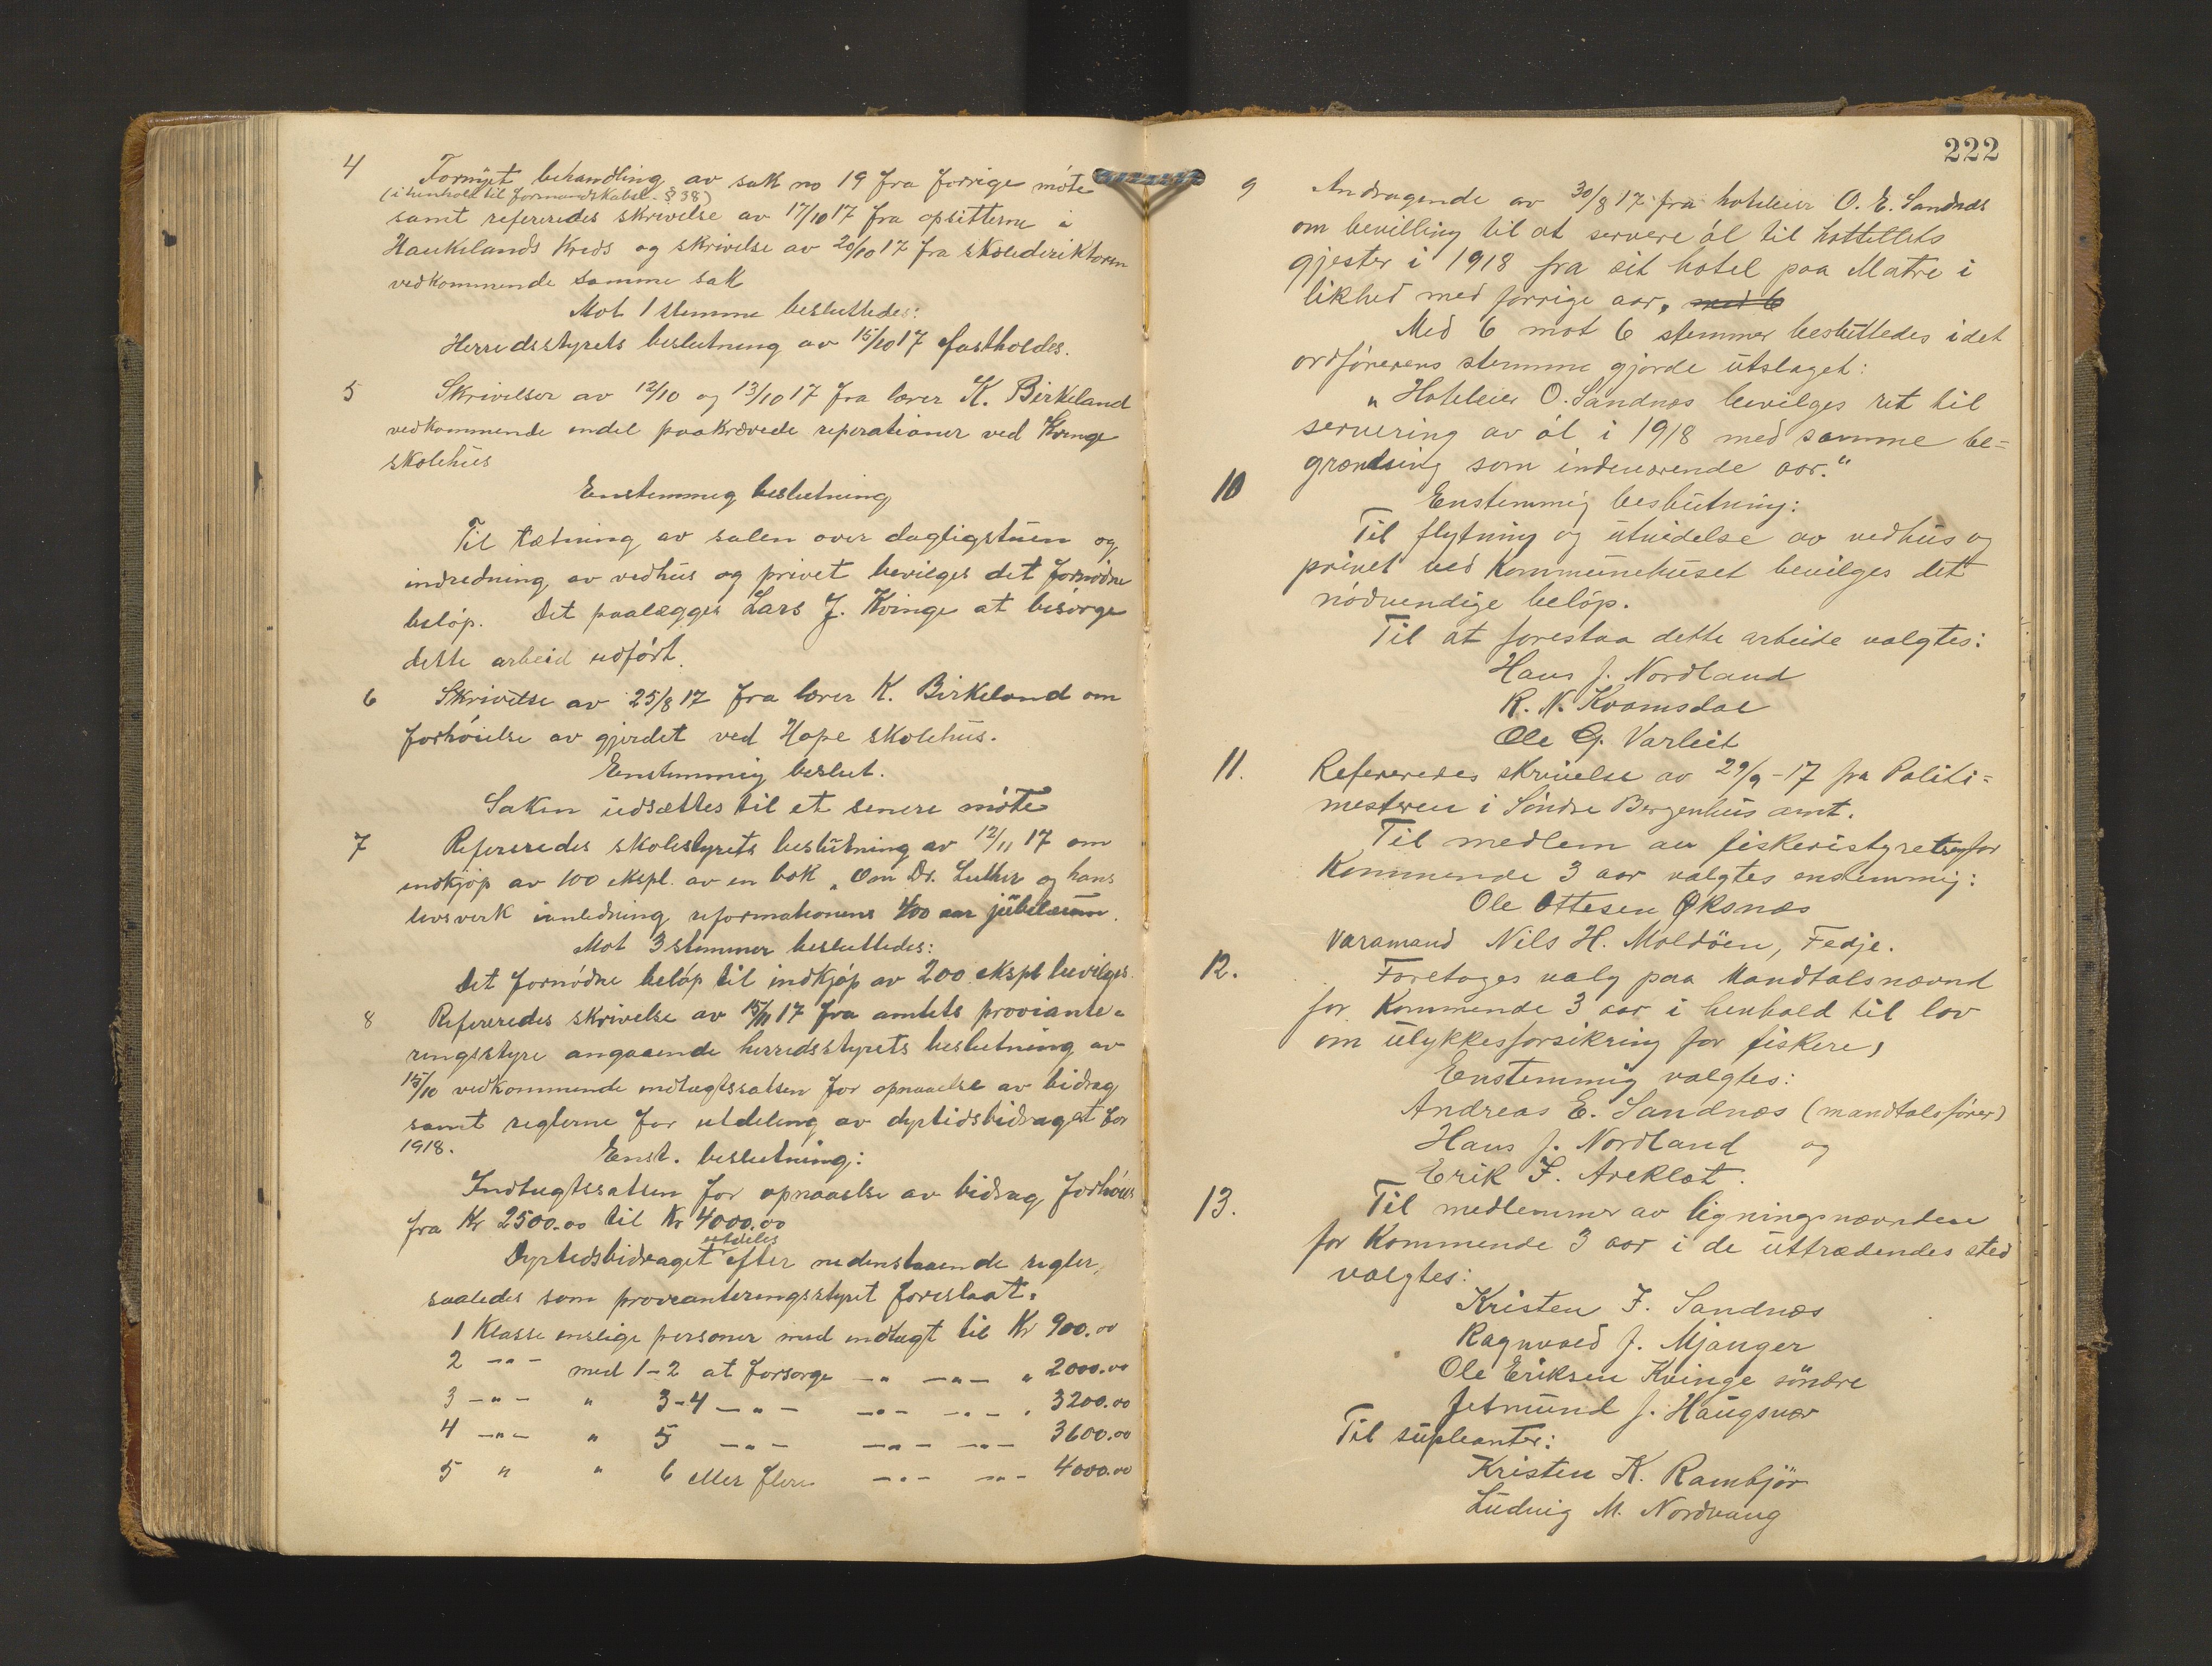 4 Fornyet behandling av sak no 19 fra forrige møte
(i henhold til formandskabsl. § 38)
samt refereredes skrivelse av 17/10 17 fra opsitterne i
Haukelands Kreds og skrivelse av 20/10 17 fra skolediriktøren
vedkommende samme sak
Mot 1 stemme besluttedes:
Herredsstyrets beslutning av 15/10 17 fastholdes.
5 Skrivelser av 12/10 og 13/10 17 fra lærer K. Birkeland
vedkommende endel paakrævede reperationer ved Kvinge
skolehus
Enstemmig beslutning
Til tætning av salen over dagligstuen og
indredning av vedhus og privet bevilges det fornødne
beløp. Det paalægges Lars J. Kvinge at besørge
dette arbeid udført.
6 Skrivelse av 25/8 17 fra lærer K. Birkeland om
forhøielse av gjerdet ved Hope skolehus.
Enstemmig beslut.
Saken udsættes til et senere møte
7 Refereredes skolestyrets beslutning av 12/11 17 om
indkjøp av 100 ekspl. av en bok „Om Dr. Luther og hans
livsverk i anledning reformationens 400 aar jubilæum.
Mot 3 stemmer besluttedes:
Det fornødne beløp til indkjøp av 200 ekspl bevilges.
8 Refereredes skrivelse av 15/11 17 fra amtets proviante=
ringsstyre angaaende herredsstyrets beslutning av
15/10 vedkommende indtægtssatsen for opnaaelse av bidrag
samt reglerne for utdeling av dyrtidsbidraget for
1918.
Enst. beslutning:
Indtægtssatsen for opnaaelse av bidrag forhøies
fra Kr 2500.00 til Kr 4000.00
utdeles
Dyrtidsbidraget efter nedenstaaende regler,
saaledes som provianteringsstyret foreslaat.
1 Klasse enslige personer med indtægt til Kr 900.00
2 -"- med 1-2 at forsørge -" -"- " 2000.00
3 -"- " 3-4 -"- -"- -"- " 3200.00
4 -"- " 5 -"- -"- -"- 3600.00
5 " " 6 eller flere -"- -"- 4000.00
222
9 Andragende av 30/8 17 fra hoteleier O. E. Sandnæs
om bevilling til at servere øl til hottellets
gjester i 1918 fra sit hotel paa Matre i
likhed med forrige aar. med 6
Med 6 mot 6 stemmer besluttedes idet
ordførerens stemme gjorde utslaget:
„Hoteleier O. Sandnæs bevilges ret til
servering av øl i 1918 med samme be=
grændsing som indeværende aar."
10 Enstemmig beslutning:
Til flytning og utvidelse av vedhus og
privet ved Kommunehuset bevilges det
nødvendige beløp.
Til at forestaa dette arbeide valgtes:
Hans J. Nordland
R. N. Kvamsdal
Ole G. Varleit
11. Refereredes skrivelse av 29/9-17 fra Politi=
mesteren i Søndre Bergenhus amt.
Til medlem av fiskeristyret for
Kommende 3 aar valgtes enstemmig:
Ole Ottesen Øksnæs
Varamand Nils H. Moldøen, Fedje.
12. Foretoges valg paa Mandtalsnævnd
for Kommende 3 aar i henhold til lov
om ulykkesforsikring for fiskere,
Enstemmig valgtes:
Andreas E. Sandnæs (mandtalsfører)
Hans J. Nordland og
Erik J. Areklet.
13. Til medlemmer av ligningsnævnden
for Kommende 3 aar i de uttrædendes sted
valgtes:
Kristen J. Sandnæs
Ragnvald J. Mjanger
Ole Eriksen Kvinge söndre
Jetmund J. Haugsvær
Til supleanter:
Kristen K. Rambjör
Ludvig M. Nordvang